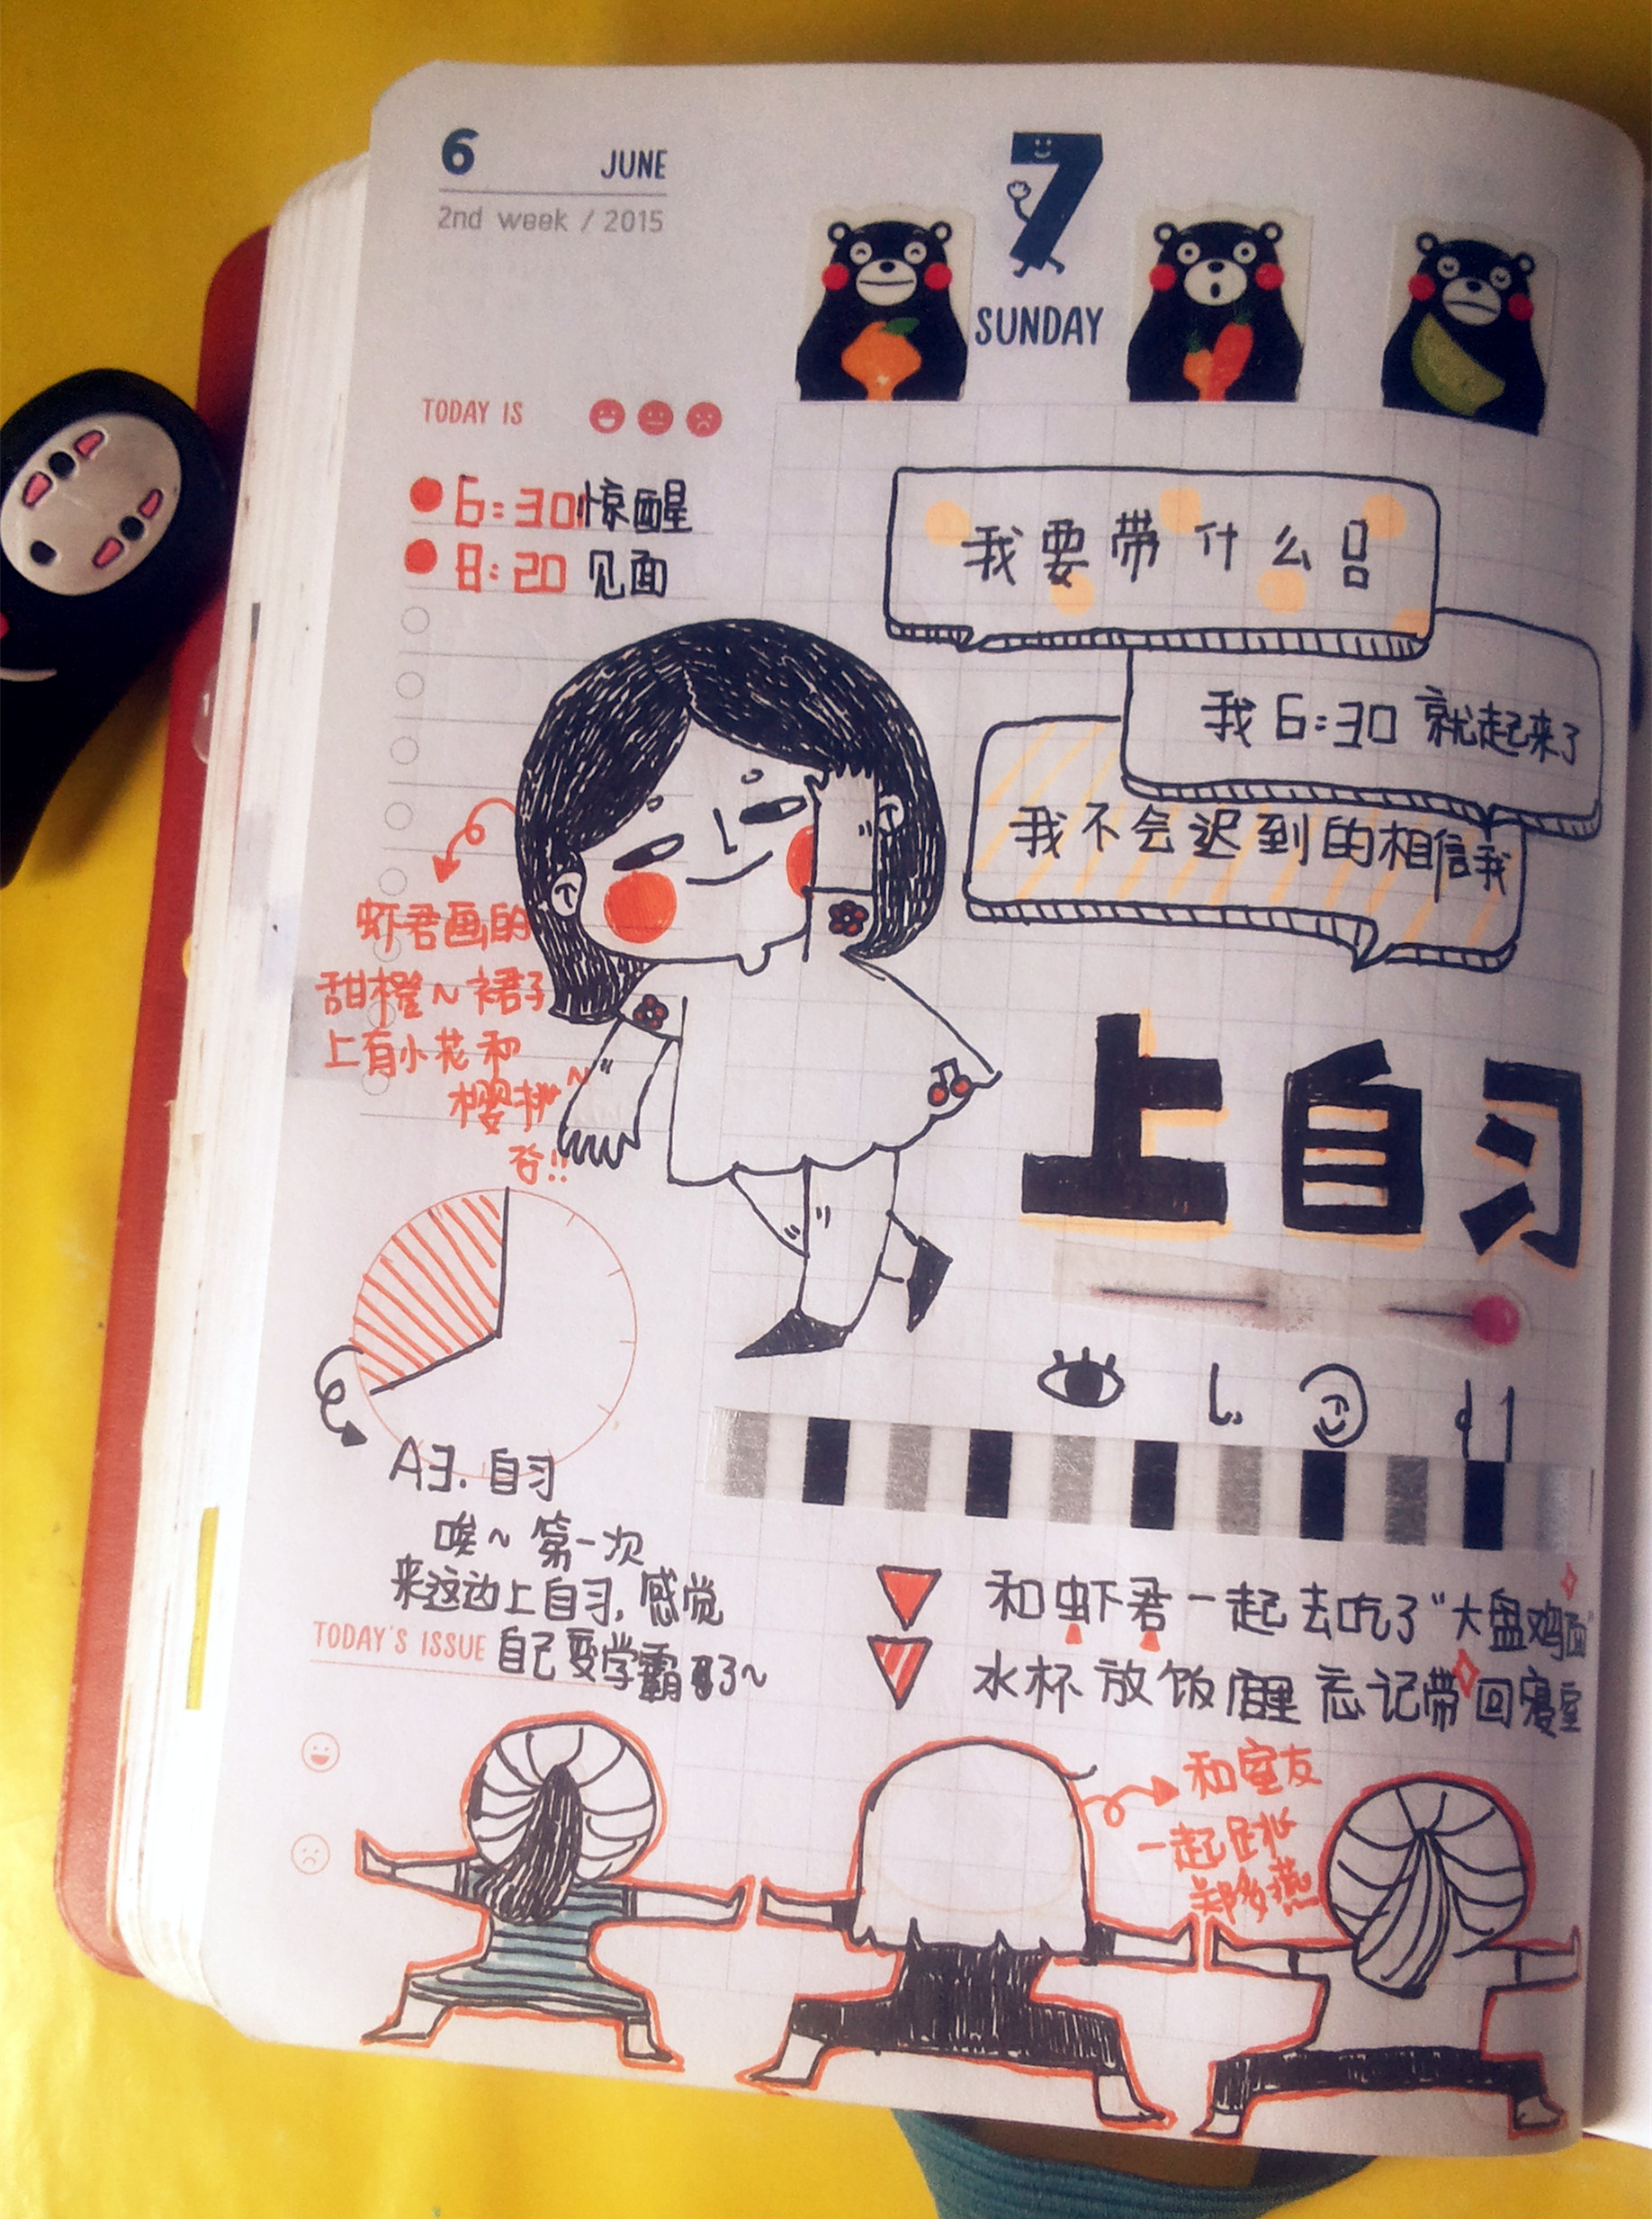 6 JUNE
2nd week / 2015
7
SUNDAY
TODAY IS
6:30惊醒
8:20 见面
我要带什么
我6:30就起来了
我不会迟到的相信我
虾君画的
甜橙~裙子
上有小花和
樱桃~
上自习
A3.自习
唉~第一次
来这边上自习,感觉
TODAY'S ISSUE 自己变学霸了~
和虾君一起去吃了"大盘鸡面"
水杯放饭店里忘记带回寝室
和室友
一起跳
郑多燕